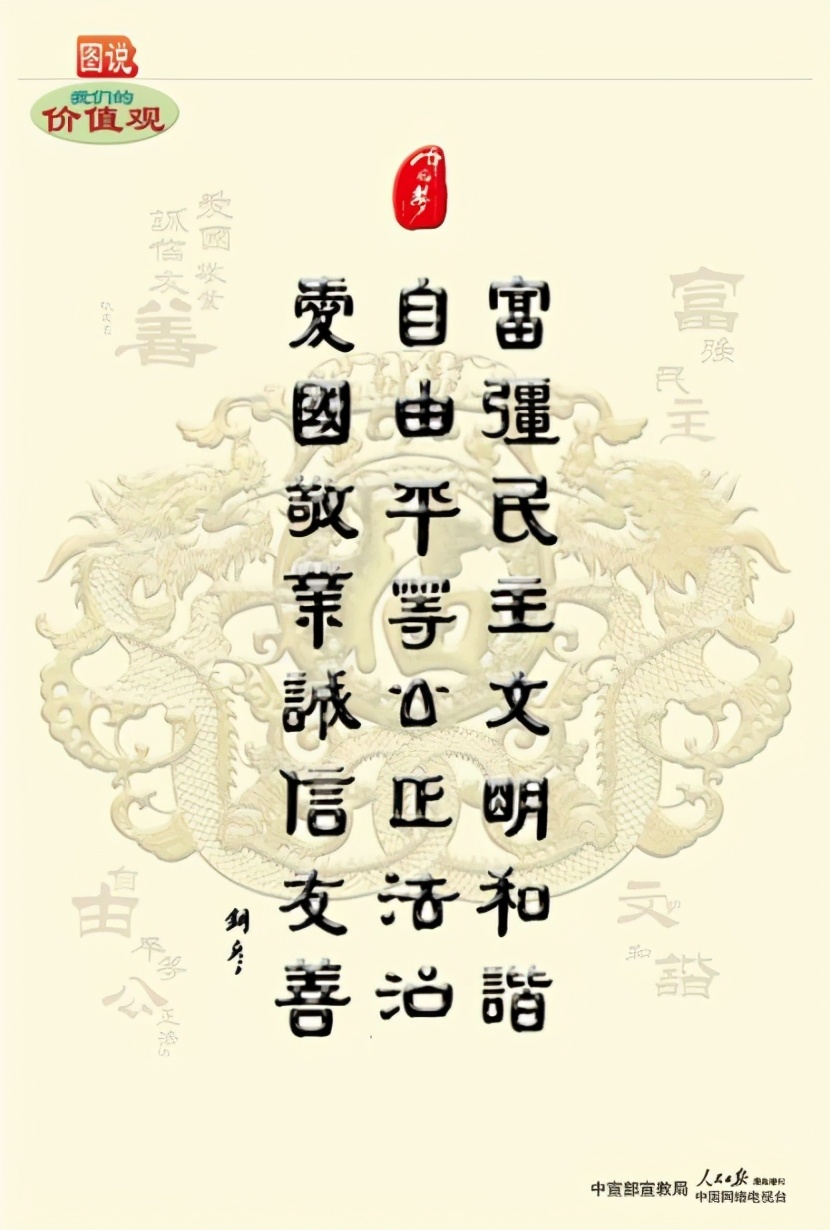 图说
我们的
价值观
中国梦
富彊民主文明和諧
自由平等公正法治
愛國敬業誠信友善
富強
民主
自由
平等
公正
文
和諧
愛國敬業
誠信友善
中宣部宣教局
人民日报
中国网络电视台